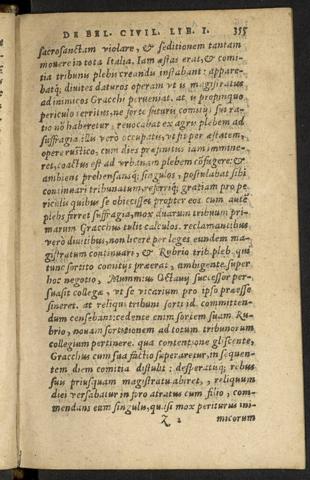 DE BEL. CIVIL. LIB. I. 355
sacrosanctam violare, & seditionem tantam
mouere in tota Italia. Iam æstas erat, & comi-
tia tribunis plebis creandis instabant: appare-
batq́; diuites daturos operam vt is magistratus
ad inimicos Gracchi perueniat. at is propinquo
periculo territus, ne forte futuri comitij sui ra-
tio nō haberetur, reuocabat ex agris plebem ad
suffragia: illis verò occupatis, vt fit per æstatem,
opere rustico, cum dies præfinitus iam immine-
ret, coactus est ad vrbanam plebem cōfugere: &
ambiens prehensansq́; singulos, postulabat sibi
continuari tribunatum, referriq́; gratiam pro pe
riculis quibus se obiecisset propter eos cum autē
plebs ferret suffragia, mox duarum tribuum pri-
marum Gracchus tulit calculos. reclamantibus
verò diuitibus, non licere per leges eundem ma-
gistratum continuari, & Rubrio trib. pleb. qui
tunc sortitò comitijs præerat, ambigente super
hoc negotio, Mummius Octauij successor per-
suasit collegæ, vt se vicarium pro ipso præesse
sineret. at reliqui tribuni sorti id committen-
dum censebant: cedente enim sortem suam Ru-
brio, nouam sortitionem ad totum tribunorum
collegium pertinere. qua contentione gliscente,
Gracchus cum sua factio superaretur, in sequen-
tem diem comitia distulit: desperatisq́; rebus
suis priusquam magistratu abiret, , reliquum
diei versabatur in foro atratus cum filio, com-
mendans eum singulis, quasi mox periturus ini-
Z 2 micorum